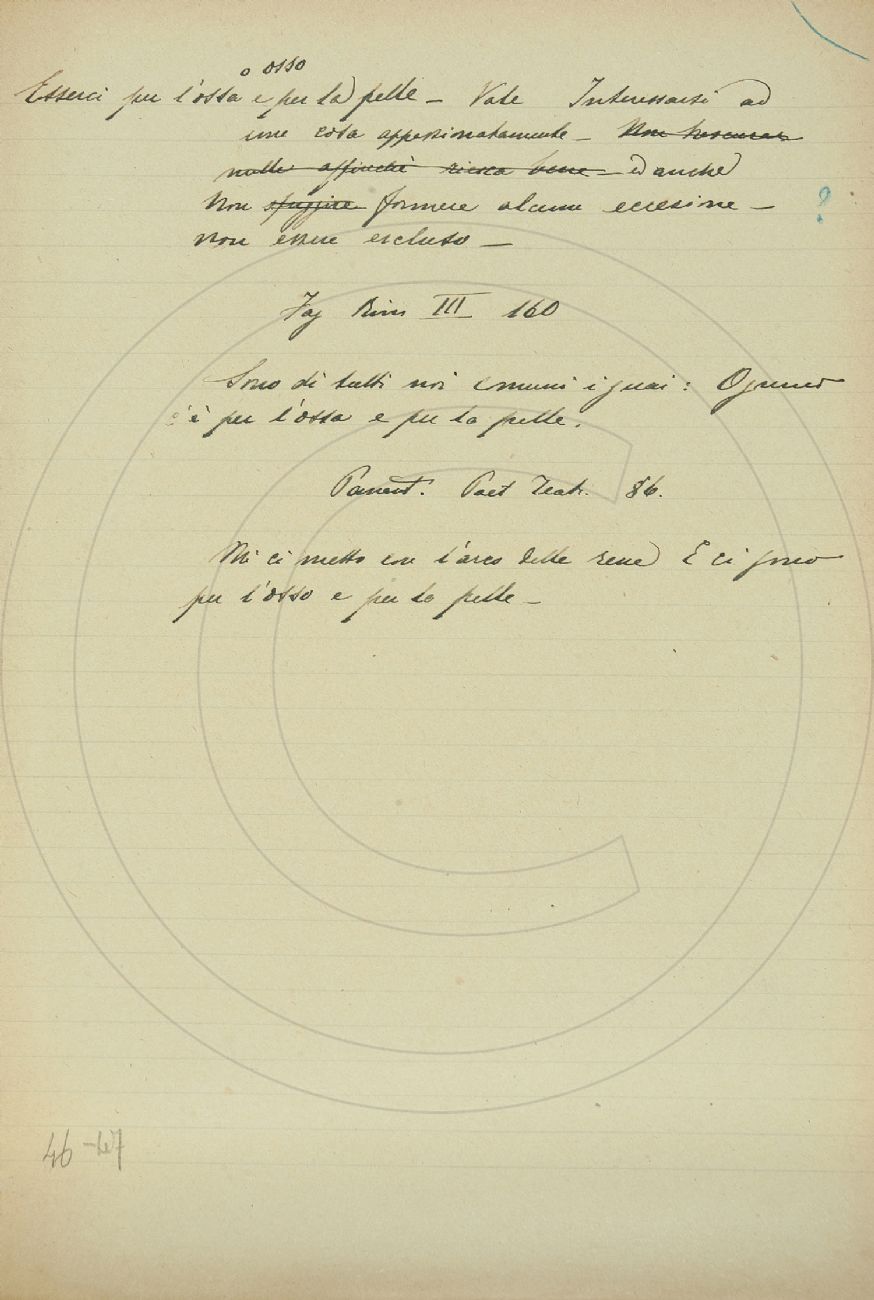 o osso
Esserci per l'ossa e per la pelle — Vale Interessarsi ad
una cosa appassionatamente — Non trascurar
nulla affinchè riesca bene — ed anche
Non sfuggire formare alcuna eccezione — ?
non essere escluso —
Fag Rim III 160
Sono di tutti noi comuni i guai: Ognuno
c'è per l'ossa e per la pelle.
Panant. Poet Teat. 86.
Mi ci metto con l'arco delle rene E ci sono
per l'osso e per la pelle —
46-47